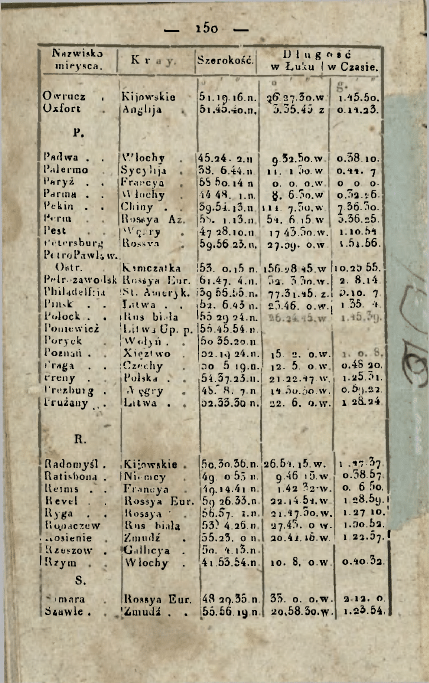 — 150 —
Nazwisko mieysca. Kray. Szerokość. Długość w Łuku w Czasie.
Owrucz Kijowskie 51.19.16.n. 26.27.30.w 1.45.50.
Oxfort Anglija 51.45.40.n. 3.35.45 z 0.14.23.
P.
Padwa Włochy 45.24. 2.n 9.32.30.w. 0.38.10.
Palermo Sycylija 38. 6.44.n
Paryż Francya o. o. o.w o o o.
Parma Włochy 8. 6.30.w 0.32.26.
Pekin Chiny 39.54.13.n 114. 7.30.w. 7.36.30.
Perm Rossya Az. 58. 1.13.n. 54. 6.15 w 3.36.25.
Pest Węgry 47 28.10.n. 17 43.30.w. 1.10.54
Petersburg Rossya 59.56 23.n. 27.59. o.w 1.51.56.
PetroPawłow.
Ostr. Kamczatka 53. 0.15 n. 156.28.45.w 10.25 55.
Petrozawodsk Rossya Eur. 61.47. 4.n. 2. 8.14.
Philadelfija St. Ameryk. 39 56.55.n 77.31.45. z. 5.10. 7
Pinsk Litwa 52. 6.43 n 23.46. o.w 1 35. 4.
Połock Rus biała 55 29 24.n.
Poniewież Litwa Gp. p. 55.45.54.n.
Poryck Wołyń 50 35.20.n
Poznań Xięztwo 52.19 24.n. 15. 2. o.w
Praga Czechy 50 5 19.n. 12. 5. o.w 0.48 20.
Preny Polska 54.37.23.n. 21.22.47.w 1.25.31.
Prezburg Węgry 48. 8. 7.n 14.50.30.w. 0.59.22
Prużany Litwa 52.33.30 n. 22. 6. o.w 1 28.24.
R.
Radomyśl Kijowskie 50.30.36.n. 26.54.15.w.
Ratisbona Niemcy 49 0 53 n 9.46 15.w 0.38.57.
Reims Francya 49.14.41 n. 1.42 32.w. 0. 6 50.
Revel Rossya Eur. 59 26.33.n. 22.14 54.w. 1.28.59.
Ryga Rossya 56.57. 1.n. 21.47.30.w. 1.27 10.
Rohaczew Rus biała 53. 4.26.n. 27.43. o w 1.50.52.
Rosienie Zmudź 55.23. 0 n 20.44.16.w 1 22.57.
Rzeszow Gallicya 50. 4.13.n.
Rzym Włochy 41 53.54.n 10. 8. o.w 0.40.32.
S.
Samara Rossya Eur. 48 29.35.n 33. o. o.w. 2.12. o.
Szawle Zmudź 55.56.19 n. 20.58.30.w. 1.23.54.